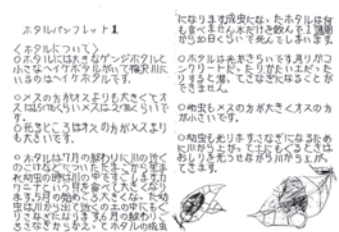 ホタルパンフレット1
<ホタルについて>
○ホタルには大きなゲンジホタルと
小さなヘイケホタルがいて福沢川に
いるのはヘイケホタルです。
○メスの方がオスよりも大きくてオ
スは15ミリぐらいメスは2㎝ぐらいで
す。
○光るところはオスの方がメスより
も大きいです。
○ホタルは7月の終わりに川の近く
のこけなどにたまごから生ま
れ幼虫の時は川の中ですごします。カ
ワニナという貝を食べて大きくなり
ます。5月の始めごろ大きくなった幼
虫は川から出て近くの土の中にもぐ
りさなぎになります。6月の終わりご
ろさなぎからかえってホタルの成虫
になります。成虫になったホタルは何
も食べません水だけを飲んで1週間
から10日くらいで死んでしまいます。
○ホタルは光がきらいです。周りがコ
ンクリートだったりかたい土だった
りすると潜ってさなぎになることがで
きません。
○幼虫もメスの方が大きくオスの方
が小さいです。
○幼虫も光ります。さなぎになるため
に川から上がって土にもぐるときは
おしりを光らせながら川から上がっ
てきます。